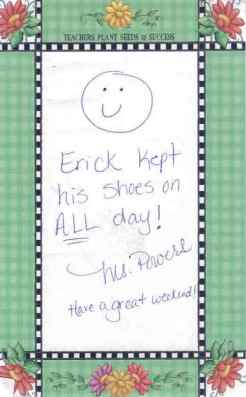 TEACHERS PLANT SEEDS of SUCCESS
Erick kept
his shoes on
ALL day!
Mrs. Powers
Have a great weekend!